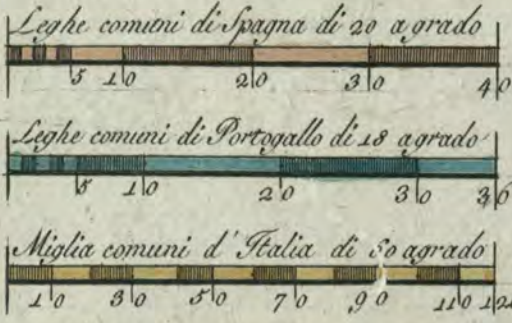 Leghe comuni di Spagna di 20 a grado
5 10 20 30 40
Leghe comuni di Portogallo di 18 a grado
5 10 20 30 36
Miglia comuni d'Italia di 60 a grado
10 30 50 70 90 110 120